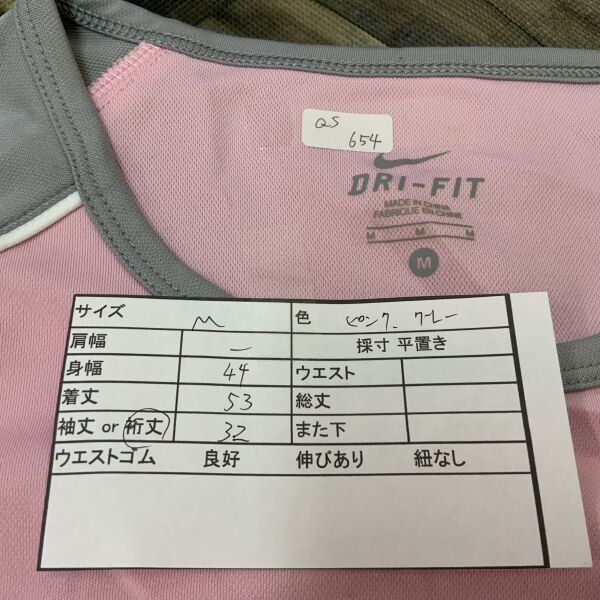 QS
654
DRI-FIT
MADE IN CHINA
FABRIQUE EN CHINE
M M M
M
サイズ M 色 ピンク、グレー
肩幅 ー 採寸 平置き
身幅 44 ウエスト
着丈 53 総丈
袖丈 or 裄丈 32 また下
ウエストゴム 良好 伸びあり 紐なし